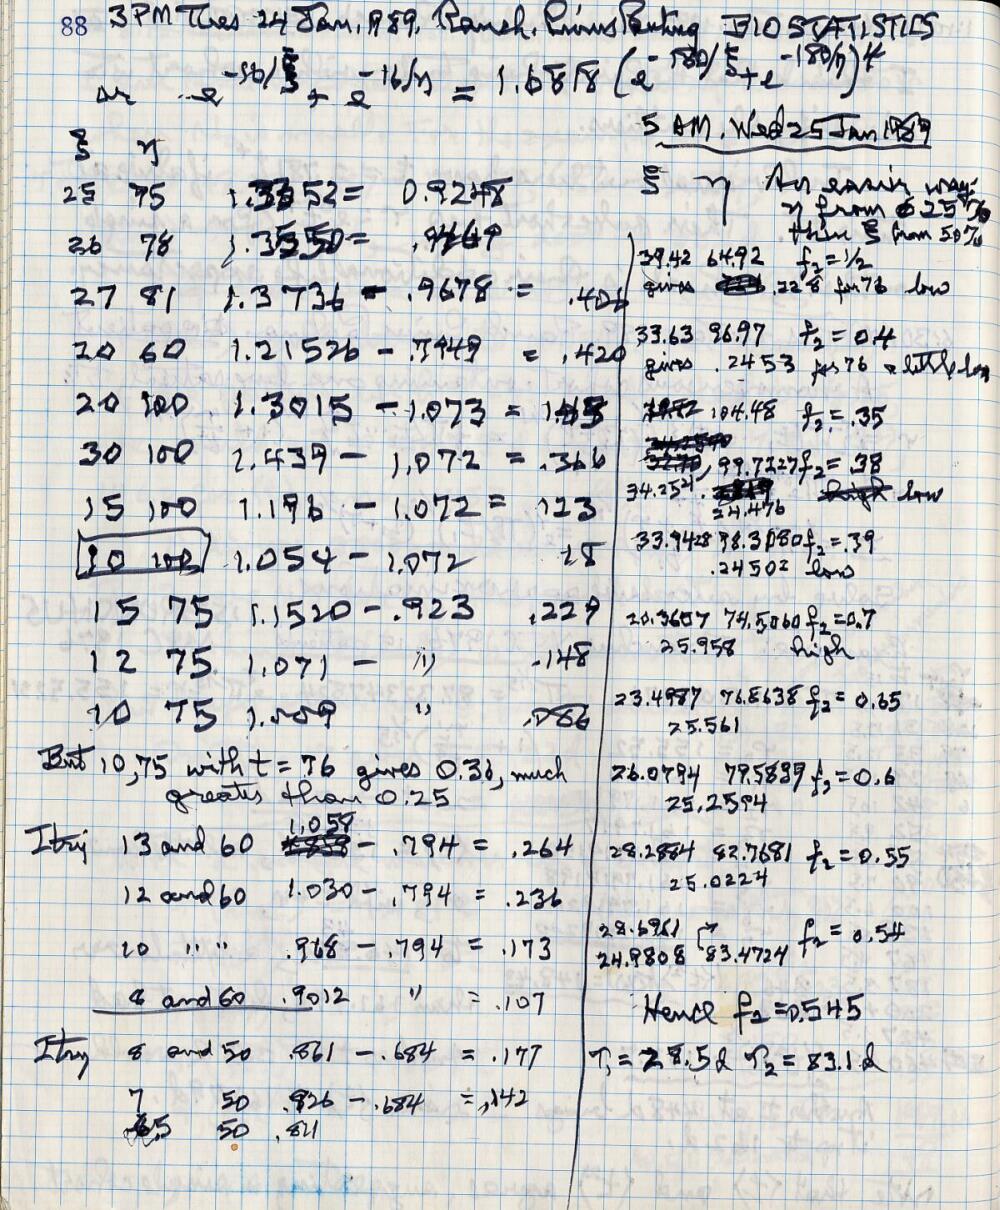 88 3 PM Tues 24 Jan, 1989, Ranch. Linus Pauling BIOSTATISTICS
or e^-16/ξ + e^-16/η = 1.6818 (e^-180/ξ + e^-180/η)^¼
ξ η
25 75 1.3352 = 0.9248
26 78 1.3550 = .9469
27 81 1.3736 - .9678 = .406
20 60 1.21526 - .7949 = .420
20 100 1.3015 - 1.073 =
30 100 1.439 - 1.072 = .366
15 100 1.196 - 1.072 = 123
10 100 1.054 - 1.072 18
15 75 1.1520 - .923 .229
12 75 1.071 - " .148
10 75 1.009 " .086
But 10,75 with t = 76 gives 0.36, much
greater than 0.25
I try 13 and 60 1.058 - .794 = .264
12 and 60 1.030 - .794 = .236
10 " " .968 - .794 = .173
8 and 60 .9012 " = .107
I try 8 and 50 .861 - .684 = .177
7 50 .826 - .684 = .142
6.5 50 .811
5 AM. Wed 25 Jan 1989
ξ η An easier way:
η from 6.25%
then ξ from 50%
39.42 64.92 f₂ = 1/2
gives .228 for 76 low
33.63 96.97 f₂ = 0.4
gives .2453 for 76 a little low
104.48 f₂ = .35
99.7227 f₂ = .38
34.254 24.476 low
33.9428 98.3080 f₂ = .39
.24502 low
20.3607 74.5060 f₂ = 0.7
25.958 high
23.4987 76.8638 f₂ = 0.65
25.561
26.0794 79.5839 f₂ = 0.6
25.2594
28.2884 82.7681 f₂ = 0.55
25.0224
28.6961 83.4724 f₂ = 0.54
24.9808
Hence f₂ = 0.545
τ₁ = 28.5 d τ₂ = 83.1 d